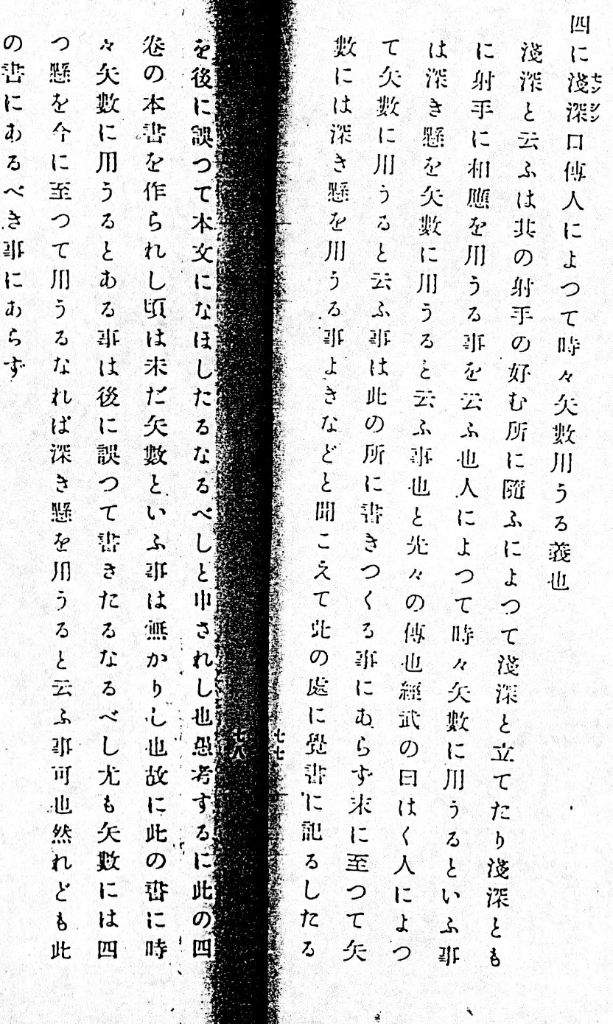 四に淺深口傳人によつて時々矢數用うる義也
センシン
淺深と云ふは其の射手の好む所に隨ふによつて淺深と立てたり淺深とも
に射手に相應を用うる事を云ふ也人によつて時々矢數に用うるといふ事
は深き懸を矢數に用うると云ふ事也と先々の傳也經武の曰はく人によつ
て矢數に用うると云ふ事は此の所に書きつくる事にあらず末に至つて矢
數には深き懸を用うる事よきなどと聞こえて此の處に覺書に記るしたる
七七
七八
を後に誤つて本文になほしたるなるべしと申されし也愚考するに此の四
卷の本書を作られし頃は未だ矢數といふ事は無かりし也故に此の書に時
々矢數に用うるとある事は後に誤つて書きたるなるべし尤も矢數には四
つ懸を今に至つて用うるなれば深き懸を用うると云ふ事可也然れども此
の書にあるべき事にあらず